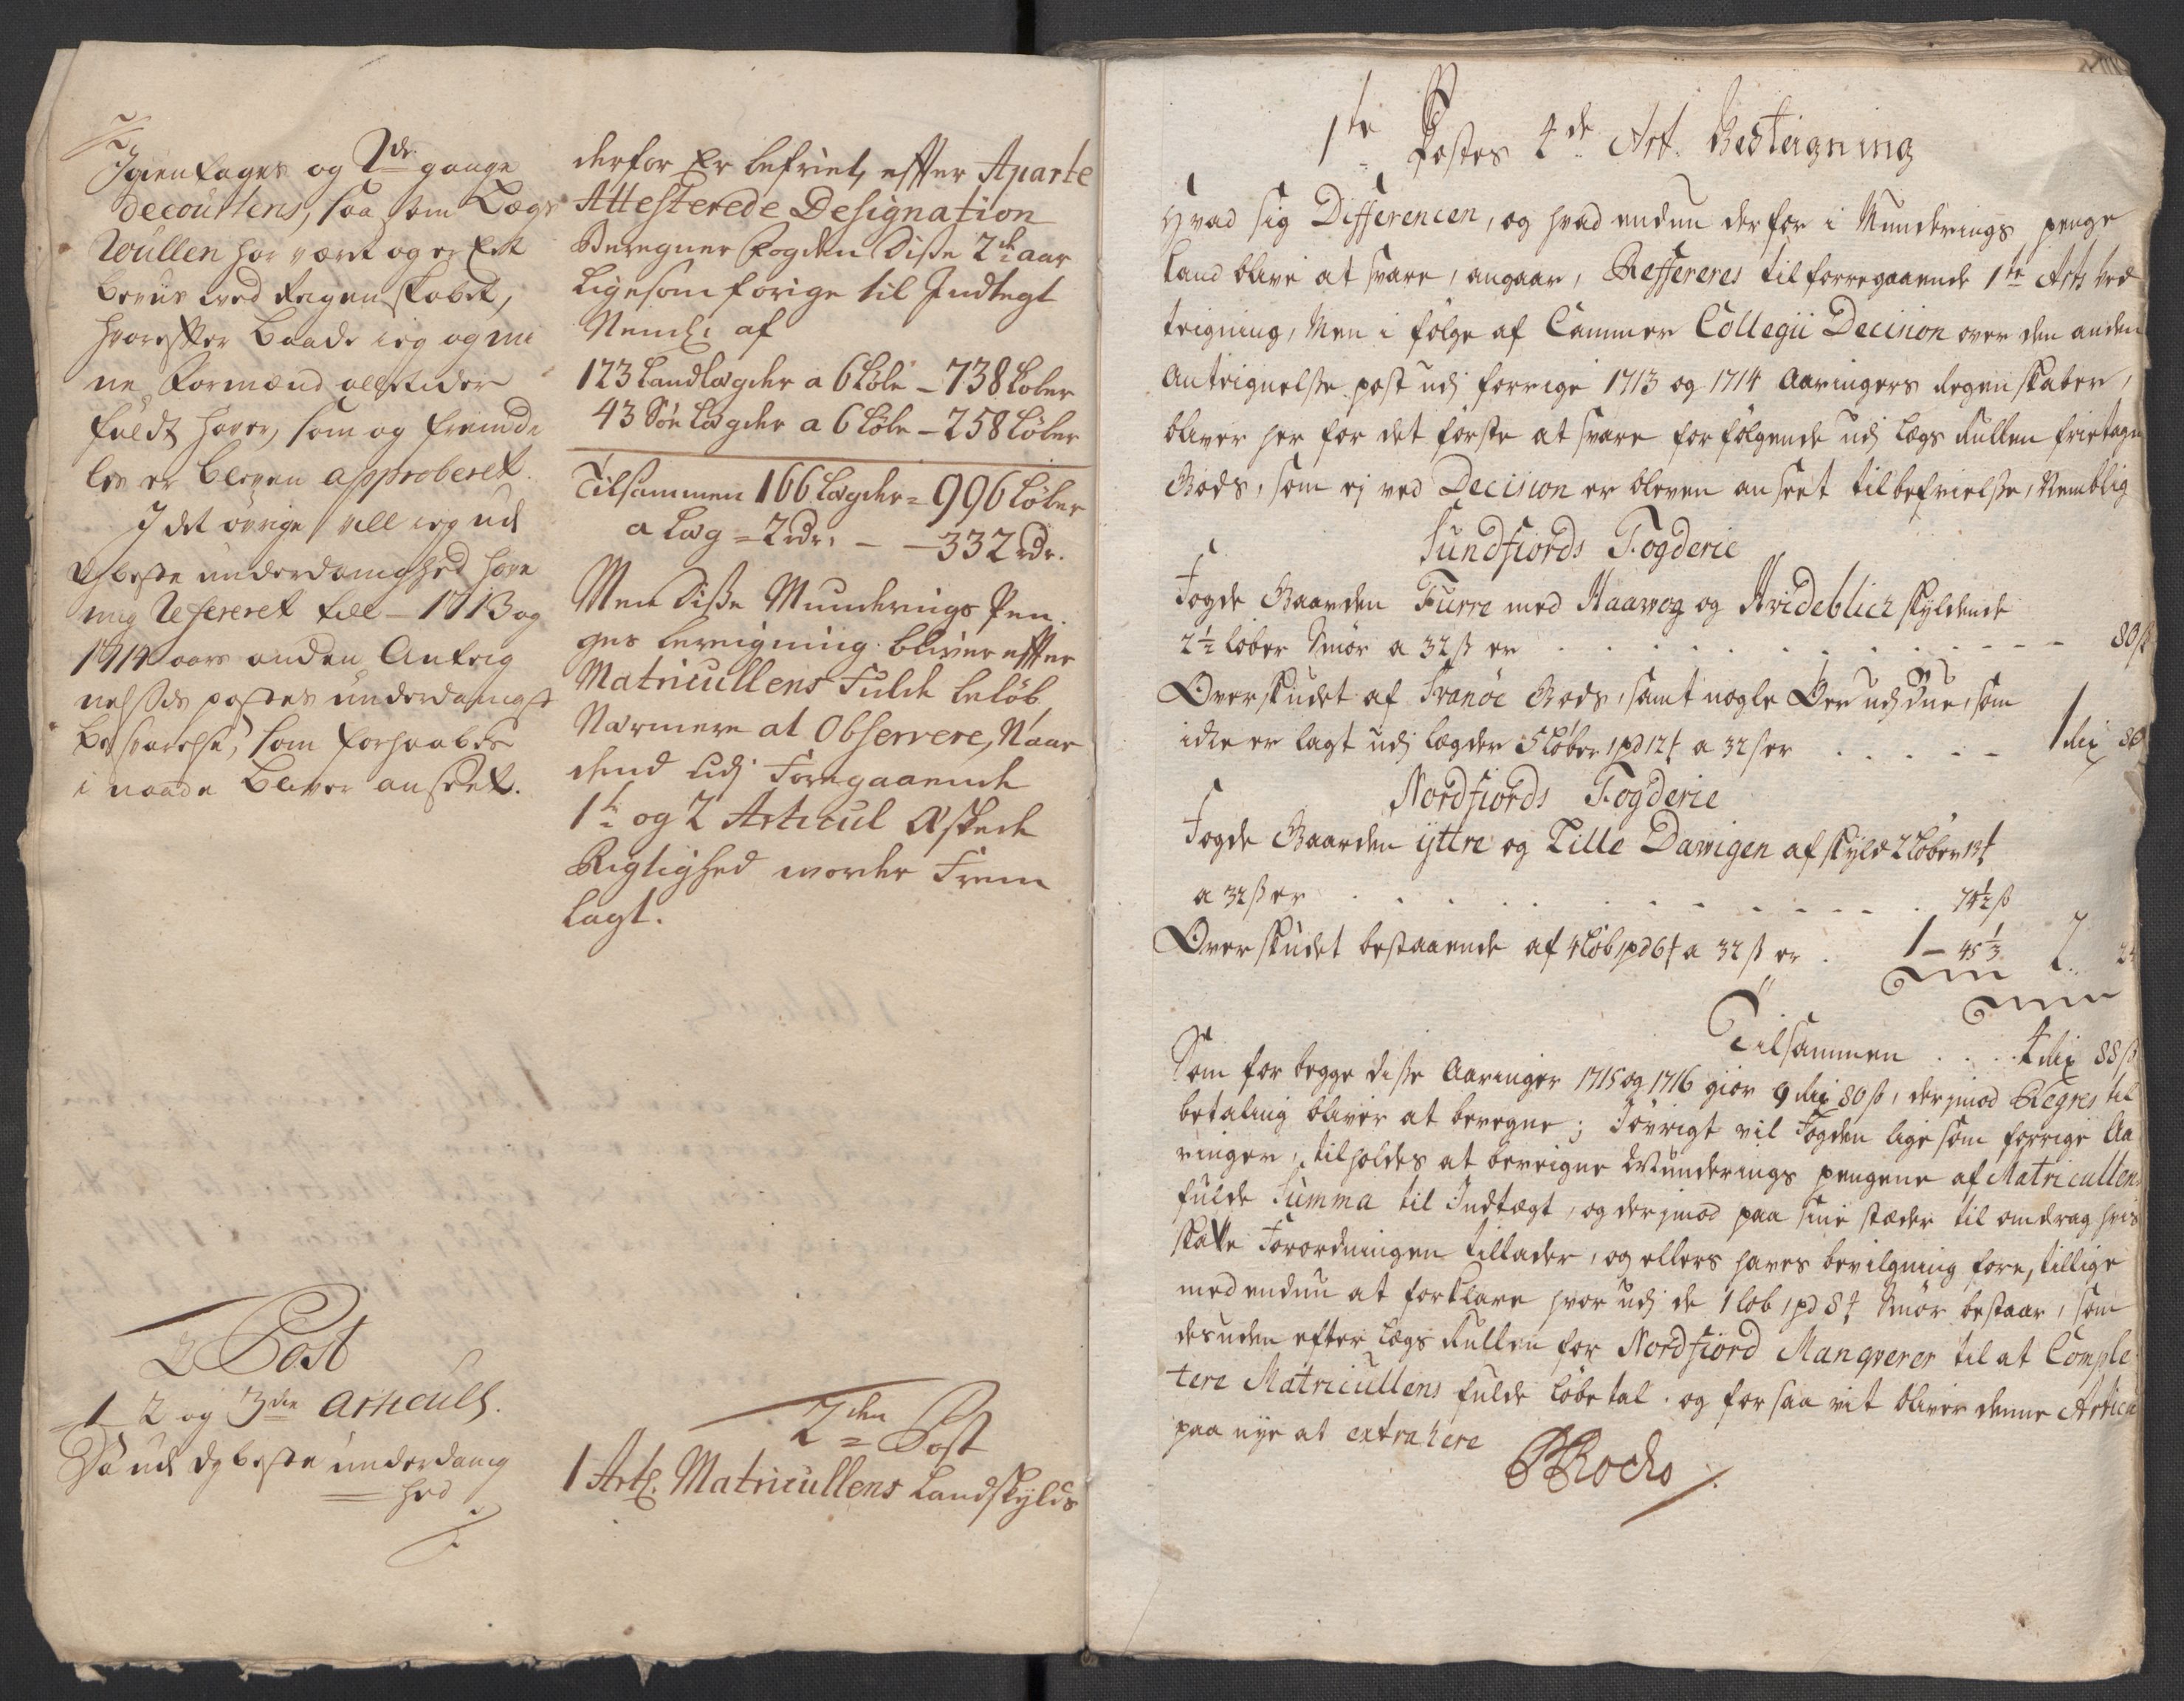 Igientages og 2de gange
decourtens, saa som Lægs
Rullen har været og er Et
beviis ved Regenskabet,
hvorefter baade ieg og mi
ne Formænd alletider
fuldt haver, som og fremde
les er bleven approberet.
I det øvrige vill ieg udj
dybeste underdanighed have
mig refereret till 1713 og
1714 aars anden Anteig
nelses postes underdanigst
besvarelse, som forhaabes
i naade bliver anseet.
2 Post
1 2 og 3die Articuls.
Udj dybeste underdanig
hed
derfor Er befriet, effter Aparte
Attesterede Designation
Beregner Fogden Disse 2de aar
Ligesom forige til Indtegt
Nemlig af
123 Landlægder a 6 Løbe - 738 Løber
43 Søe Lægder a 6 Løbe - 258 Løber
Tilsammen 166 Lægder = 996 Løber
a Læg = 2 rdr. - - 332 rdr.
Men Disse Munderings Pen
ges bereigning bliver effter
Matricullens Fulde beløb
Nærmere at Observere, Naar
dend udj Foregaaende
1te og 2 Articul Æskede
Rigtighed vorder Frem
lagt.
2den Post
1 Art. Matricullens Landskylds
1te Postes 4de Art. Besteigning
Hvad sig Differencen, og hvad endnu derfor i Munderings penge
kand blive at svare, angaar, Reffereres til forregaaende 1te Arts bes
teigning, Men i følge af Cammer Collegii Decision over den anden
Anteignelses post udj forrige 1713 og 1714 Aaringers Regenskaber,
bliver her for det første at svare for følgende udj Lægs Rullen frietagne
Gods, som ej ved Decision er bleven anseet til befrielse, Nemblig
Sundfiords Fogderie
Fogde Gaarden Furre med Haavog og Hvideblich skyldende
2½ løber Smør a 32 ß er . . . . . 80 ß
Overskudet af Svanøe Gods, samt nogle Øer udj Bue, som
icke er lagt udj Lægder 5 løber 1 pd 12 ℔ a 32 ß er . . . . 1 dlr 80
Nordfiords Fogderie
Fogde Gaarden yttre og Lille Dawigen af skyld 2 løber 13 ℔
a 32 ß er . . . . . 74½ ß
Overskudet bestaaende af 4 løb 1 pd 6 ℔ a 32 ß er . 1 - 45⅓ 2 . . 24
Tilsammen . . . 4 dlr 88 ß
Som for begge disse Aaringer 1715 og 1716 giør 9 dlr 80 ß, derimod Regres til
betaling bliver at beregne; Iøvrigt vil Fogden ligesom forrige Aa
ringer, tilholdes at bereigne Munderings pengene af Matricullens
fulde Summa til Indtægt, og derimod paa sine stæder til omdrag hvis
skatte Forordningen tillader, og ellers haves bevilgning fore, tillige
med endnu at forklare hvor udj de 1 løb 1 pd 8 ℔ Smør bestaar, som
desuden efter Lægs Rullen for Nordfiord Manqverer til at Comple
tere Matricullens fulde løbetal. og for saa vit bliver denne Articul
paa nye at extrahere